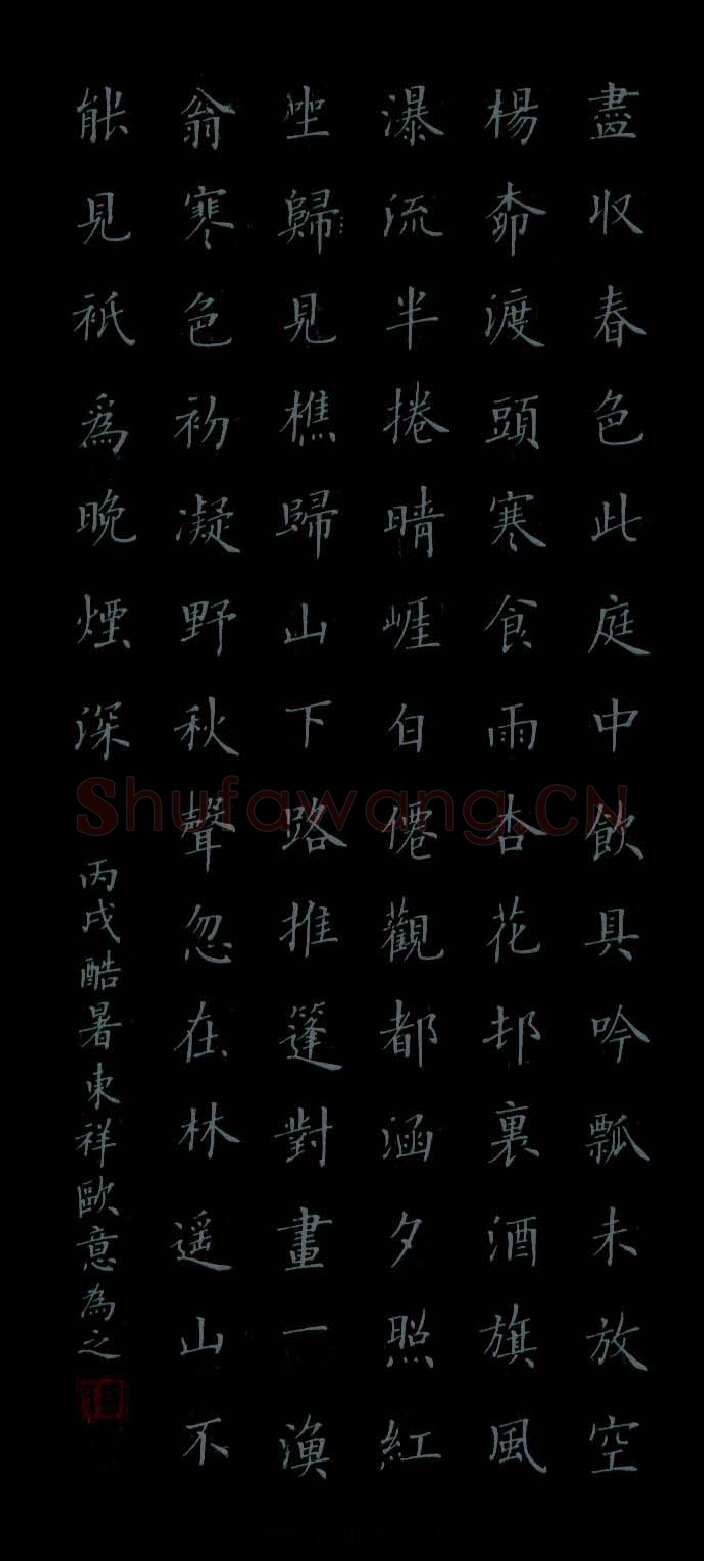 盡收春色此庭中飲具吟瓢未放空
楊柳渡頭寒食雨杏花邨裏酒旗風
瀑流半捲晴崖白僊觀都涵夕照紅
坐歸見樵歸山下路推篷對畫一漁
翁寒色初凝野秋聲忽在林遥山不
能見祇爲晚煙深
丙戌酷暑東祥歐意為之
Shufawang.CN